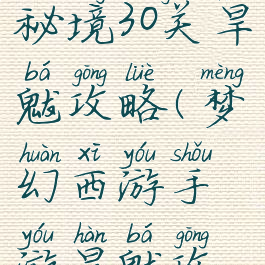 秘境30关旱
bá gōng lüè mèng
魃攻略(梦
huàn xī yóu shǒu
幻西游手
yóu hàn bá gōng
游旱魃攻